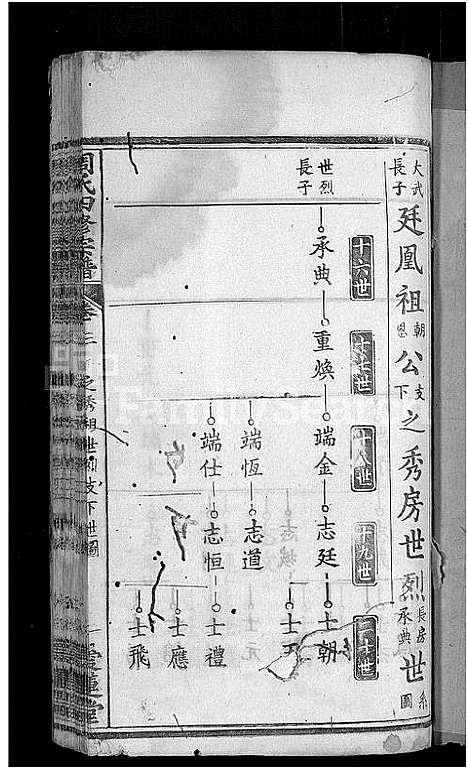 大武長子
廷鳳祖朝恩公支下之秀房世烈長房承典世系圖
十六世
十七世
十八世
十九世
二十世
世烈長子
承典
重煥
端金
志廷
士朝
端恆
志道
端仕
志恒
士禮
士應
士飛
周氏四修宗譜
卷之秀祖世烈支下世圖
愛蓮堂
FamilySearch